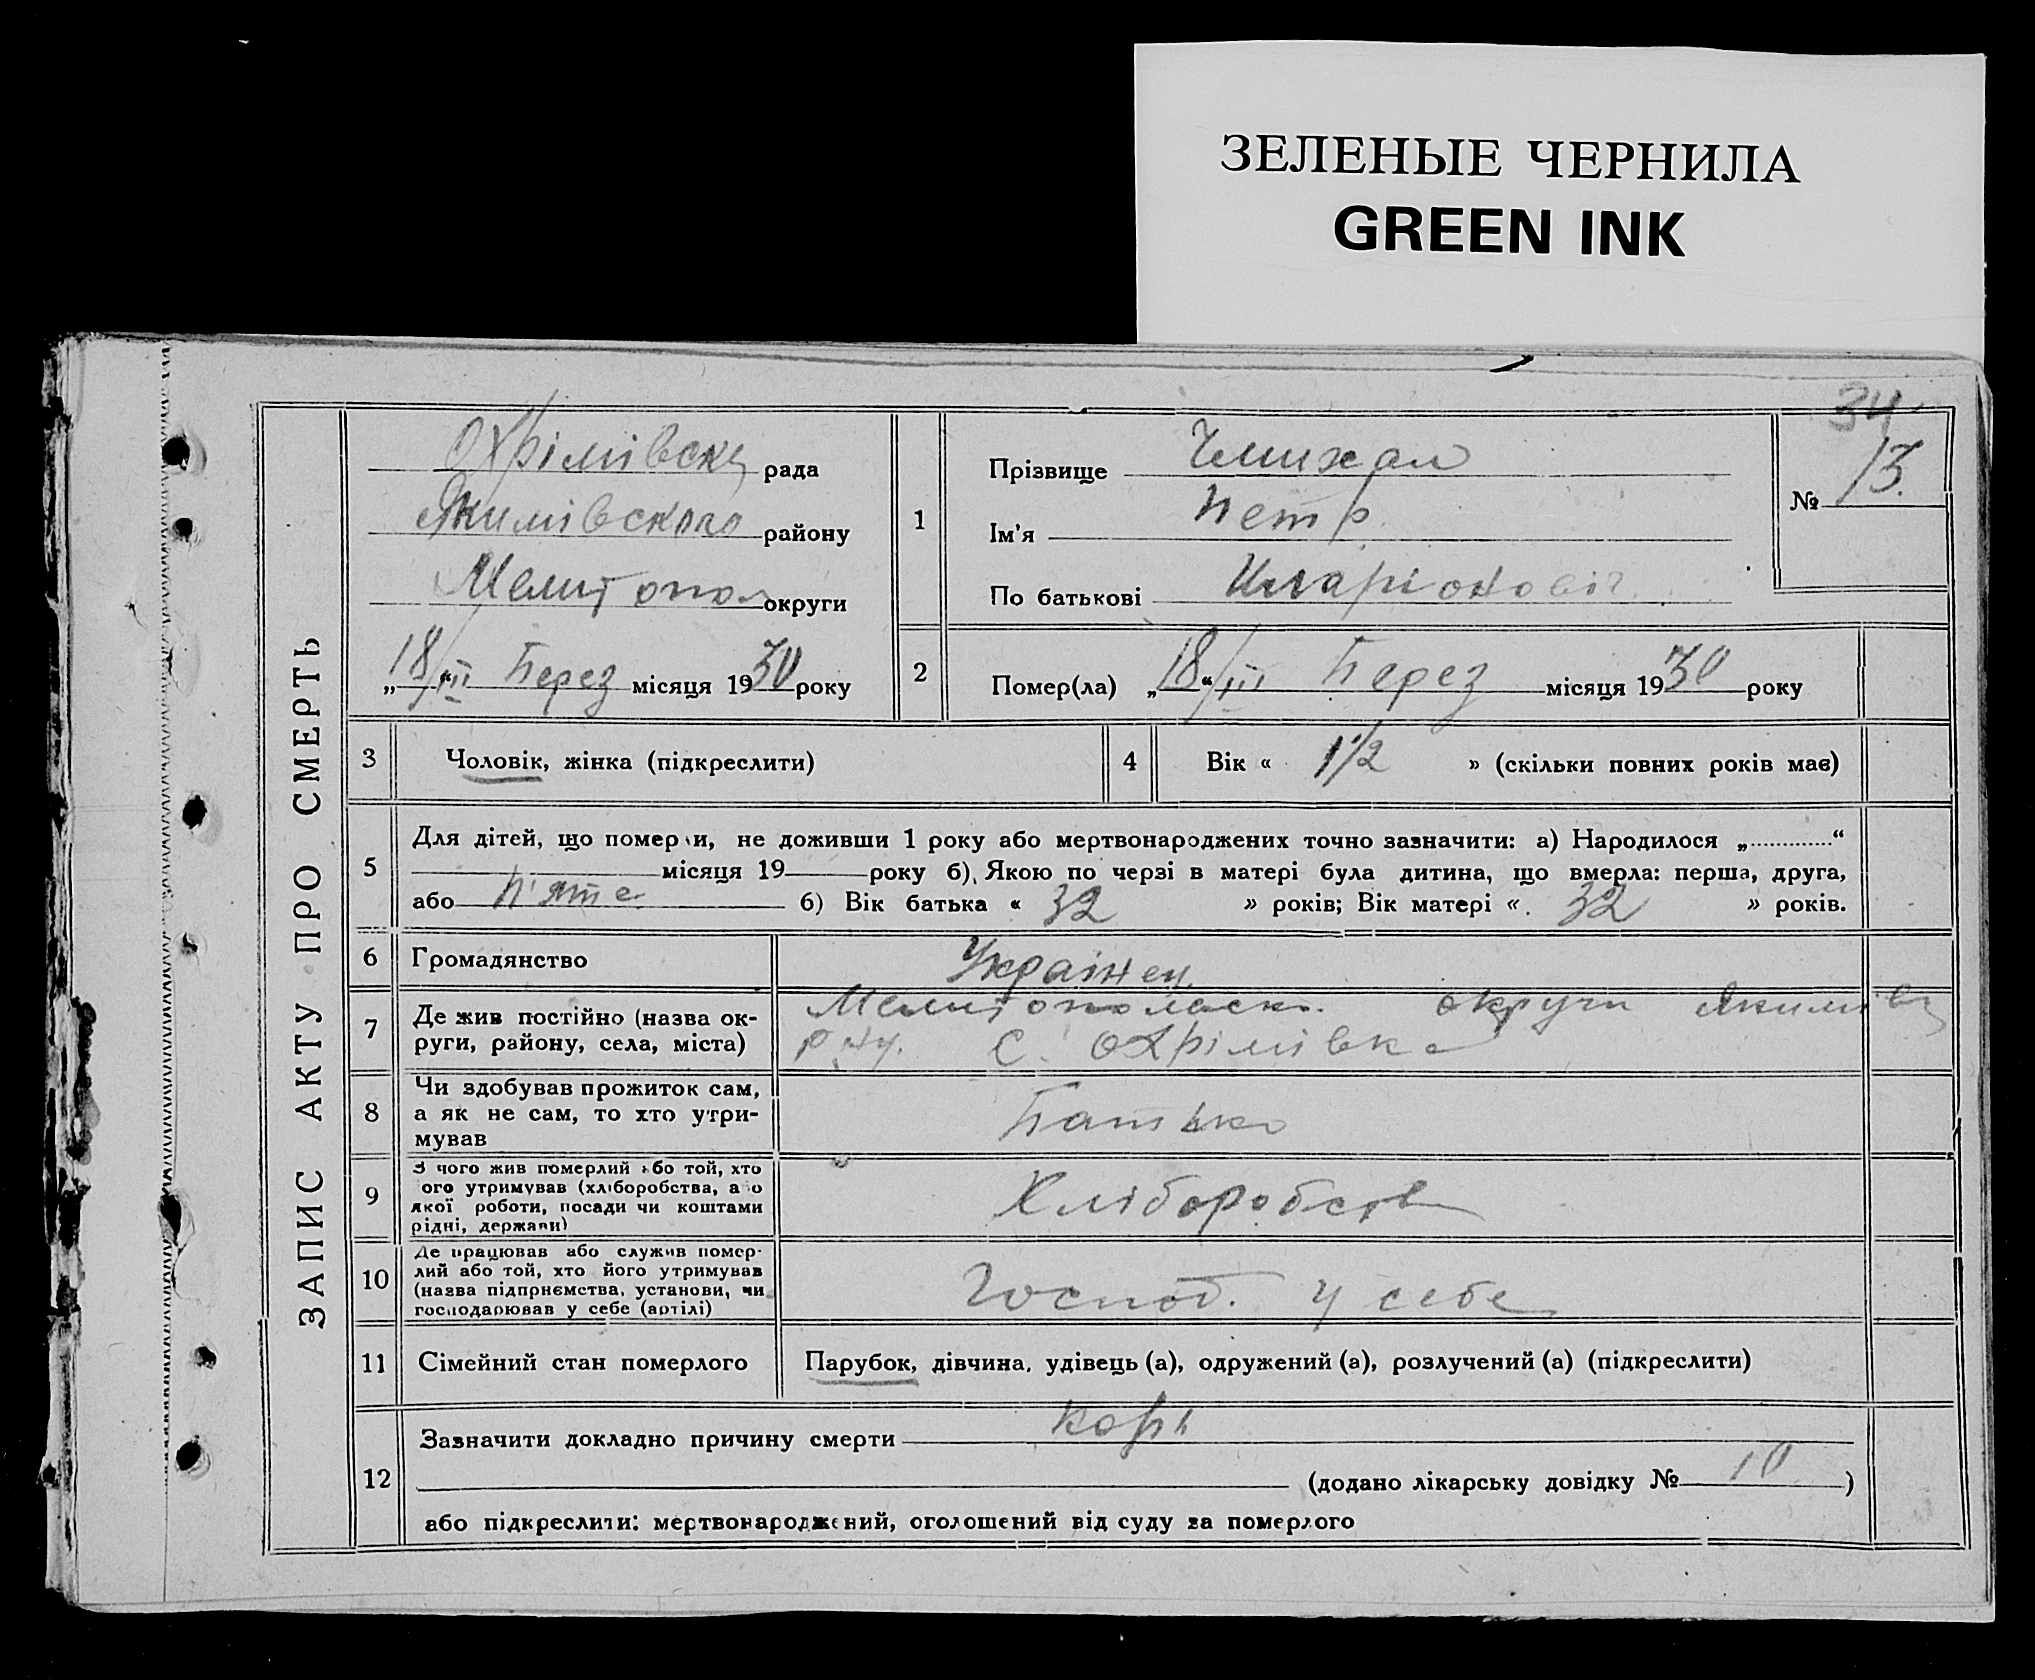 ЗЕЛЕНЫЕ ЧЕРНИЛА
GREEN INK
34
ЗАПИС АКТУ ПРО СМЕРТЬ
Охрімівськ рада
Якимівского району
Мелитопол округи
„18/III“ Берез місяця 1930 року
1
Прізвище Чмихал
Ім'я Петр
По батькові Иларіоновіч
№ 13.
2
Помер(ла) „18/III“ Берез місяця 1930 року
3 Чоловік, жінка (підкреслити)
4 Вік « 1 1/2 » (скільки повних років має)
5
Для дітей, що померли, не доживши 1 року або мертвонароджених точно зазначити: а) Народилося „.............“
місяця 19 року б) Якою по черзі в матері була дитина, що вмерла: перша, друга,
або п'яте б) Вік батька « 32 » років; Вік матері « 32 » років.
6 Громадянство Українец
7
Де жив постійно (назва ок-
руги, району, села, міста)
Мелитопольск. округи Якимів
рну. С. Охрімівка
8
Чи здобував прожиток сам,
а як не сам, то хто утри-
мував
Батько
9
З чого жив померлий або той, хто
ого утримував (хліборобства, або
якої роботи, посади чи коштами
рідні, держави)
Хліборобств
10
Де працював або служив помер-
лий або той, хто його утримував
(назва підприємства, установи, чи
господарював у себе (артілі)
Господ. у себе
11 Сімейний стан померлого Парубок, дівчина, удівець (а), одружений (а), розлучений (а) (підкреслити)
12
Зазначити докладно причину смерти корь
(додано лікарську довідку № 10)
або підкреслити: мертвонароджений, оголошений від суду за померлого